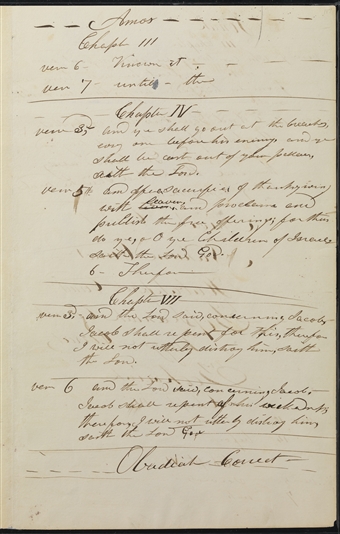 Amos
Chapt III
vers 6 -
vers 7 - until - the
Chapter IV
vers 3d and ye shall go out at the breaches,
every one before his enemy, and ye
shall be cast out of your palaces,
saith the Lord.
vers 5th and offer a sacrifice of thanksgiving
with leaven, and proclaim and
publish the free offerings; for this
do ye, O ye Children of Israel
saith the Lord God.
6 - Therefore
Chapter VII
vers 3d and the Lord said, concerning Jacob,
Jacob shall repent for this, therefore
I will not utterly destroy him, saith
the Lord.
vers 6 and the Lord said, concerning Jacob,
Jacob shall repent of his wickedness
therefore, I will not utterly destroy him,
saith the Lord God
Obadiah Correct